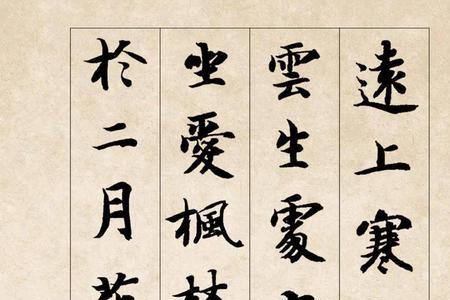 遠上寒
雲生處
坐愛楓林
於二月花